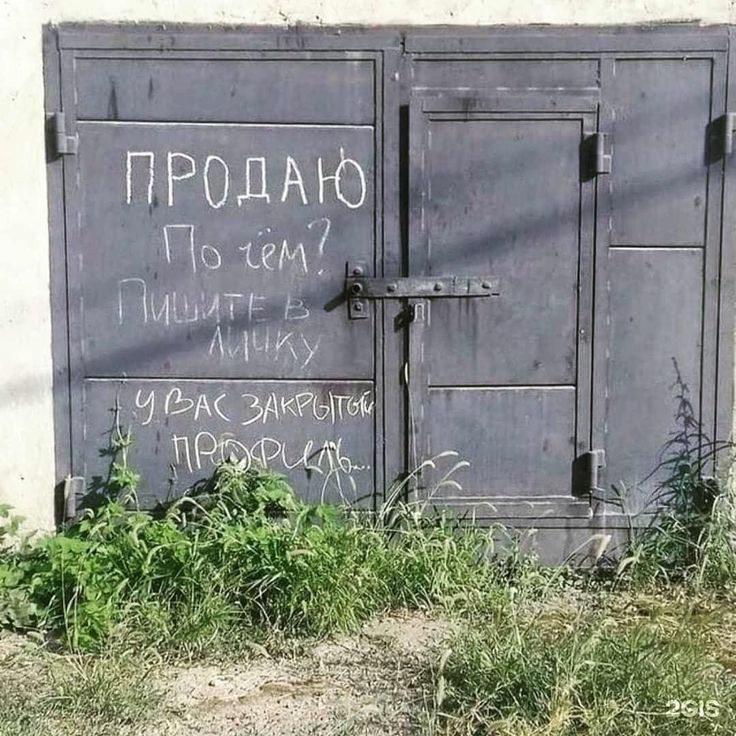 ПРОДАЮ
По чём?
Пишите в
личку
У ВАС ЗАКРЫТЫЙ
ПРОФИЛЬ...
2GIS